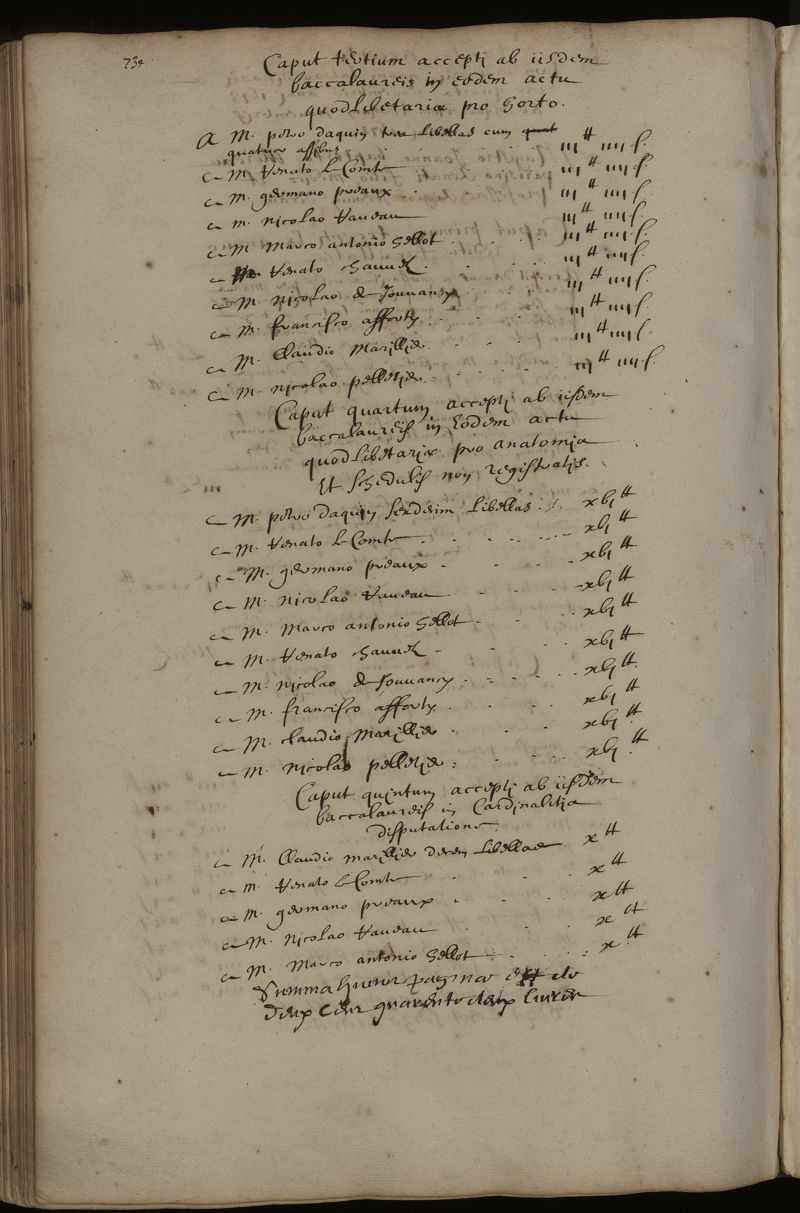 734
Caput tertium accepti ab iisdem
baccalaureis in eodem actu
quodlibetariæ pro horto.
A M. petro daquin tres libellas cum
quatuor assibus . . . iij ₶ iiij s.
a M. Renato le Comte iij ₶ iiij s.
a M. germano preaux . . . iij ₶ iiij s.
a M. nicolao Vandau iij ₶ iiij s.
a M. Marco antonio hellot . . . iij ₶ iiij s.
a M. Renato Chauvel . . . iij ₶ iiij s.
a M. nicolao de Jouvancy . . . iij ₶ iiij s.
a M. francisco afforty . . . iij ₶ iiij s.
a M. Claudio Marillier . . . iij ₶ iiij s.
a M. nicolao pelletier . . . iij ₶ iiij s.
Caput quartum accepti ab iisdem
baccalaureis in Eodem actu
quodlibetariæ pro anatomia
Et schedulis non registratis.
a M. petro daquin sexdecim libellas . xvj ₶
a M. Renato le Comte . . . xvj ₶
a M. germano preaux . . . xvj ₶
a M. nicolao Vandau . . . xvj ₶
a M. Marco antonio hellot . . . xvj ₶
a M. Renato Chauvel . . . xvj ₶
a M. nicolao de Jouvancy . . . xvj ₶
a M. francisco afforty . . . xvj ₶
a M. Claudio Marillier . . . xvj ₶
a M. nicolao pelletier . . . xvj ₶
Caput quintum accepti ab iisdem
baccalaureis in Cardinalitia
disputatione.
a M. Claudio marillier decem libellas x ₶
a M. Renato le Comte . . . x ₶
a M. germano preaux . . . x ₶
a M. Nicolao Vandau x ₶
a M. Marco antonio hellot . . . x ₶
Summa huius paginae est de
deux cens quarente deux livres